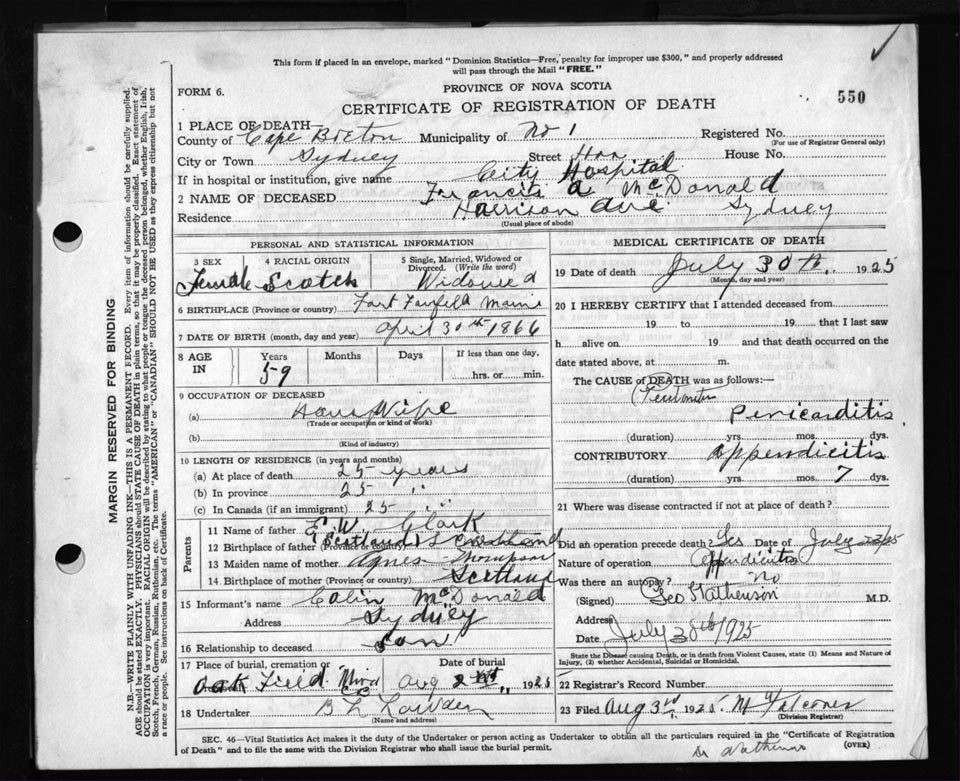 This form if placed in an envelope, marked "Dominion Statistics—Free, penalty for improper use $300," and properly addressed
will pass through the Mail "FREE."
FORM 6.
PROVINCE OF NOVA SCOTIA
CERTIFICATE OF REGISTRATION OF DEATH
550
1 PLACE OF DEATH—
County of Cape Breton Municipality of No 1 Registered No.
(For use of Registrar General only)
City or Town Sydney Street House No.
If in hospital or institution, give name City Hospital
2 NAME OF DECEASED Francis A McDonald
Residence Harrison Ave Sydney
(Usual place of abode)
PERSONAL AND STATISTICAL INFORMATION
3 SEX 4 RACIAL ORIGIN 5 Single, Married, Widowed or Divorced. (Write the word)
Female Scotch Widowed
6 BIRTHPLACE (Province or country) Fort Fairfield Maine
7 DATE OF BIRTH (month, day and year) April 30th 1866
8 AGE IN Years Months Days If less than one day,
59 hrs. or min.
9 OCCUPATION OF DECEASED
(a) House Wife
(Trade or occupation or kind of work)
(b)
(Kind of industry)
10 LENGTH OF RESIDENCE (in years and months)
(a) At place of death 25 years
(b) In province 25 "
(c) In Canada (if an immigrant) 25 "
Parents
11 Name of father E. W. Clark
12 Birthplace of father (Province or country) Scotland
13 Maiden name of mother Agnes Thompson
14 Birthplace of mother (Province or country) Scotland
15 Informant's name Colin McDonald
Address Sydney
16 Relationship to deceased Son
17 Place of burial, cremation or Date of burial
Oak Field Mira C.B. Aug 1925
18 Undertaker B L
(Name and address)
MEDICAL CERTIFICATE OF DEATH
19 Date of death July 30th, 1925
(Month, day and year)
20 I HEREBY CERTIFY that I attended deceased from
19 to 19 that I last saw
h alive on 19 and that death occurred on the
date stated above, at m.
The CAUSE of DEATH was as follows:—
Pericarditis
(duration) yrs. mos. dys.
CONTRIBUTORY Appendicitis
(duration) yrs. mos. 7 dys.
21 Where was disease contracted if not at place of death?
Did an operation precede death? Yes Date of July
Nature of operation Appendicitis
Was there an autopsy? No
(Signed) Geo M.D.
Address
Date July 1925
State the Disease causing Death, or in death from Violent Causes, state (1) Means and Nature of
Injury, (2) whether Accidental, Suicidal or Homicidal.
22 Registrar's Record Number
23 Filed Aug 3rd 1925.
(Division Registrar)
SEC. 46—Vital Statistics Act makes it the duty of the Undertaker or person acting as Undertaker to obtain all the particulars required in the "Certificate of Registration
of Death" and to file the same with the Division Registrar who shall issue the burial permit.
(OVER)
MARGIN RESERVED FOR BINDING
N.B.—WRITE PLAINLY WITH UNFADING INK—THIS IS A PERMANENT RECORD. Every item of information should be carefully supplied.
AGE should be stated EXACTLY. PHYSICIANS should STATE CAUSE OF DEATH in plain terms, so that it may be properly classified. Exact statement of
OCCUPATION is very important. RACIAL ORIGIN will be described by stating to what people or tongue the deceased person belonged, whether English, Irish,
Scotch, French, German, Russian, Ruthenian, etc. The terms "AMERICAN" or "CANADIAN" SHOULD NOT BE USED as they express citizenship but not
a race or people. See instructions on back of Certificate.